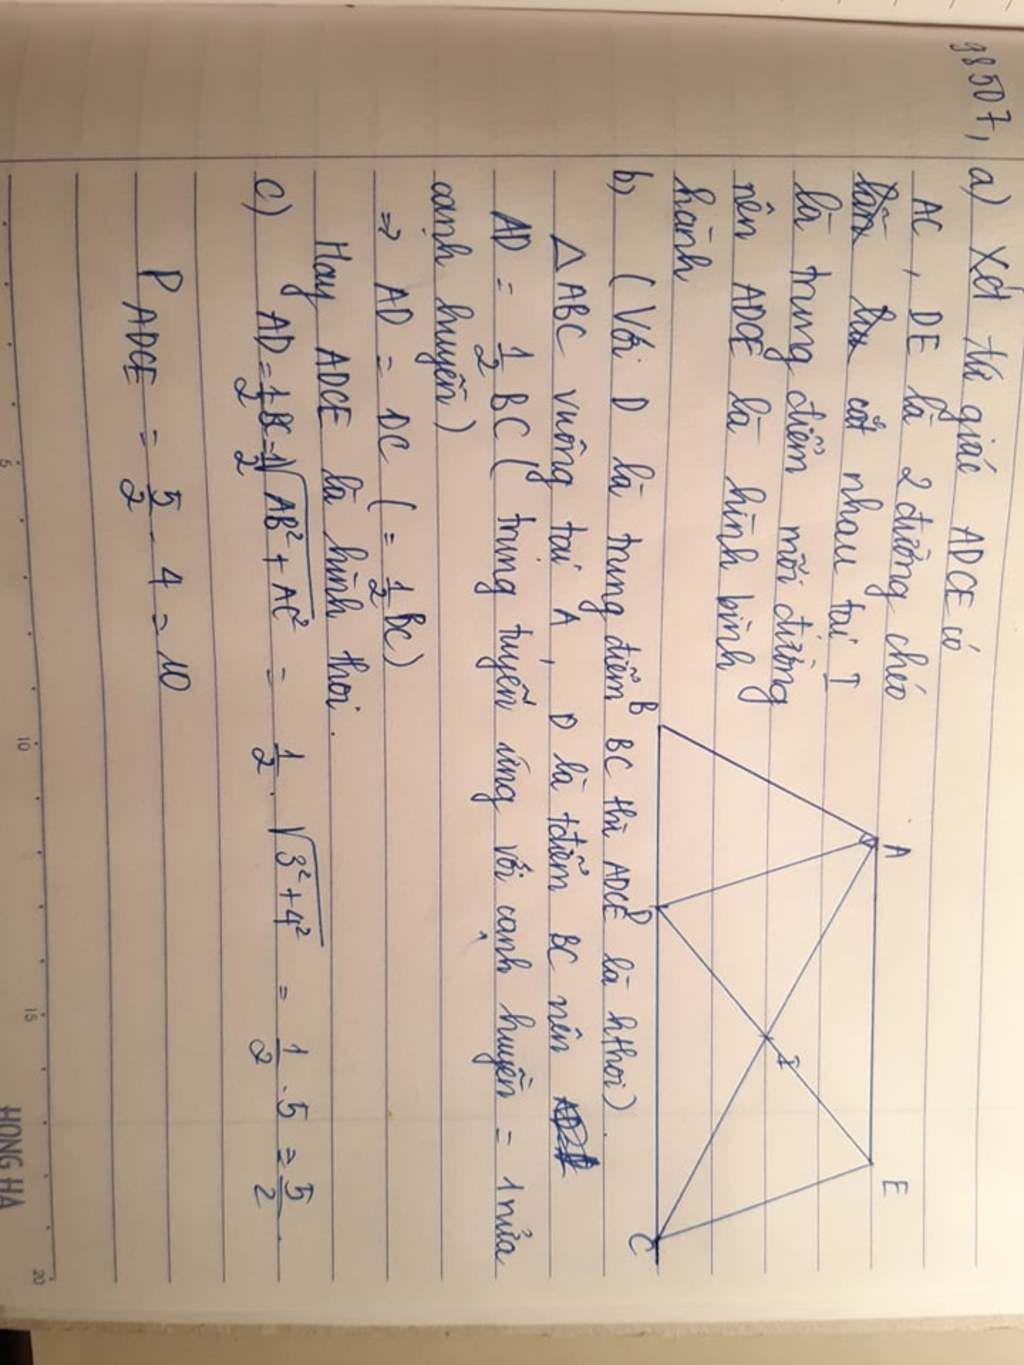 98507, a) Xét tứ giác ADCE có
AC, DE là 2 đường chéo
cắt nhau tại I
là trung điểm mỗi đường
nên ADCE là hình bình
hành
B
A
D
I
E
C
b) (Với D là trung điểm BC thì ADCE là hthoi)
△ABC vuông tại A, D là tđiểm BC nên
AD = 1/2 BC (trung tuyến ứng với cạnh huyền = 1 nửa
cạnh huyền)
⇒ AD = DC (= 1/2 BC)
Hay ADCE là hình thoi.
c) AD = 1/2 BC = 1/2 √AB² + AC² = 1/2 . √3² + 4² = 1/2 . 5 = 5/2.
P ADCE = 5/2 . 4 = 10
5
10
15
20
HONG HA